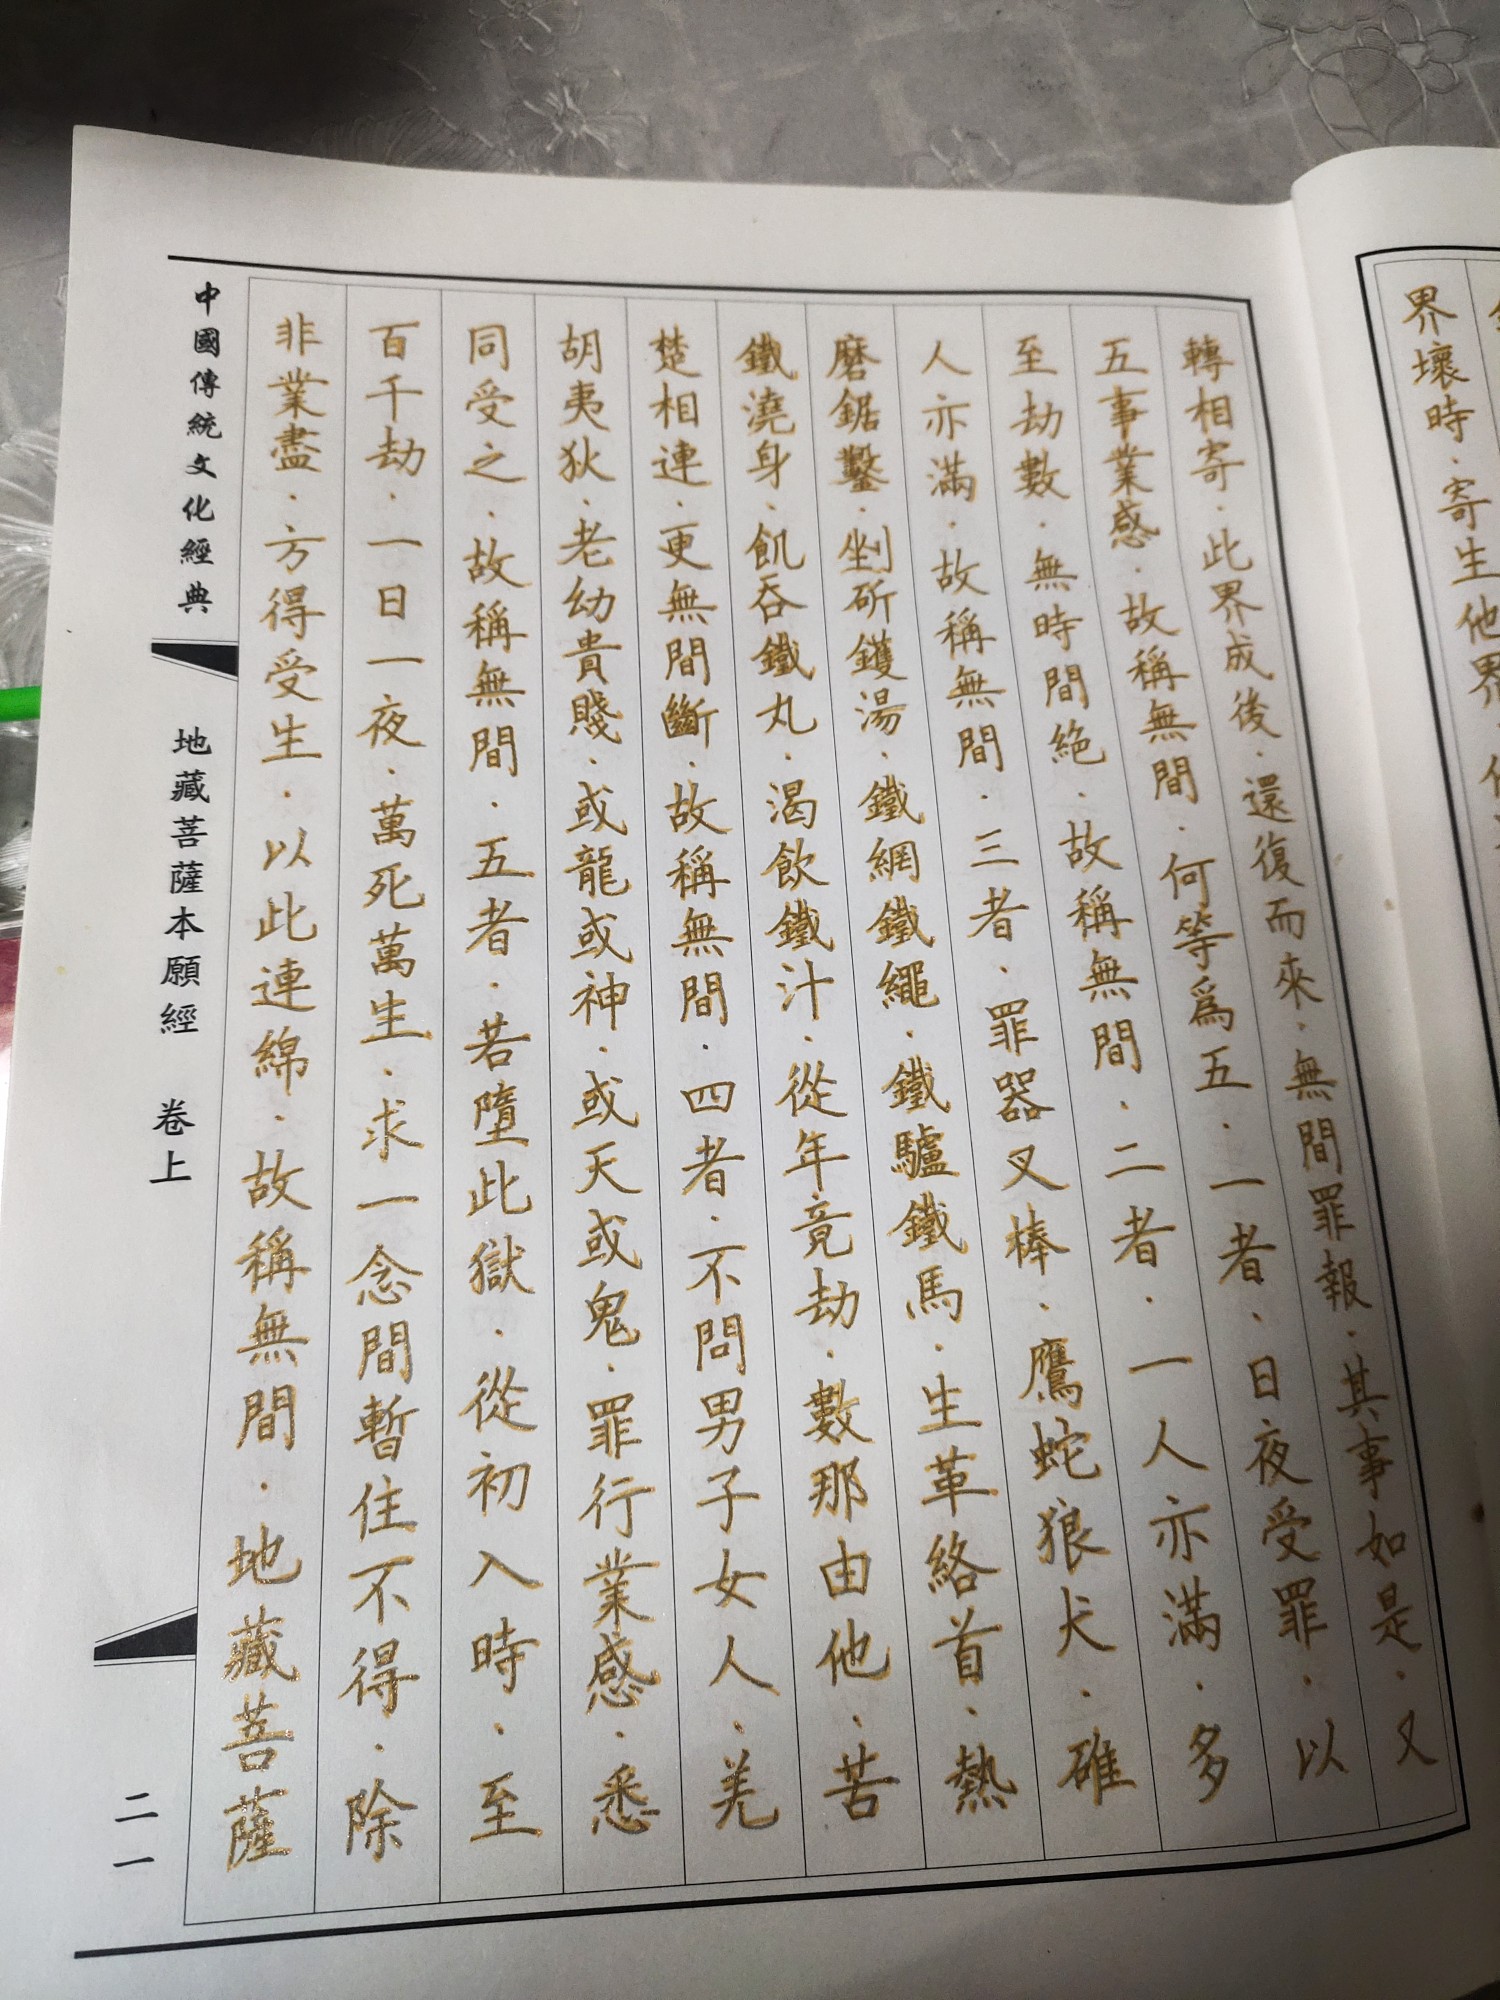 界壞時．寄生他界
轉相寄．此界成後．還復而來．無間罪報．其事如是．又
五事業感．故稱無間．何等爲五．一者．日夜受罪．以
至劫數．無時間絕．故稱無間．二者．一人亦滿．多
人亦滿．故稱無間．三者．罪器叉棒．鷹蛇狼犬．碓
磨鋸鑿．剉斫鑊湯．鐵網鐵繩．鐵驢鐵馬．生革絡首．熱
鐵澆身．飢吞鐵丸．渴飲鐵汁．從年竟劫．數那由他．苦
楚相連．更無間斷．故稱無間．四者．不問男子女人．羌
胡夷狄．老幼貴賤．或龍或神．或天或鬼．罪行業感．悉
同受之．故稱無間．五者．若墮此獄．從初入時．至
百千劫．一日一夜．萬死萬生．求一念間暫住不得．除
非業盡．方得受生．以此連綿．故稱無間．地藏菩薩
中國傳統文化經典
地藏菩薩本願經 卷上
二一